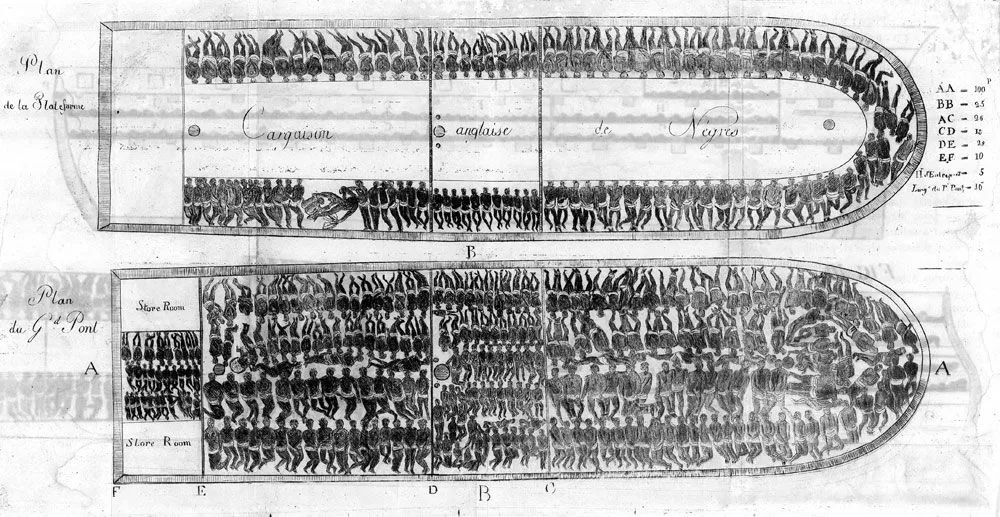 Plan
de la Plateforme
Cargaison anglaise de Nègres
AA = 100 P
BB = 25
AC = 26
CD =
DE = 29
EF = 10
5
du Pt Pont
B
Plan
du Gd Pont
Store Room
A
A
Store Room
F E D B C